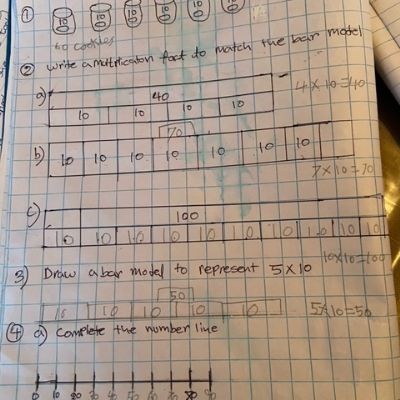 ① 10 10 10 10 10 10
60 cookies
② Write a multiplication fact to match the bar model
a) 40
10 10 10 10
4 × 10 = 40
70
b) 10 10 10 10 10 10 10
7 × 10 = 70
c) 100
10 10 10 10 10 10 10 10 10 10
10×10=100
3) Draw a bar model to represent 5×10
50
10 10 10 10 10
5×10=50
④ a) Complete the number line
0 10 20 30 40 50 60 70 80 90